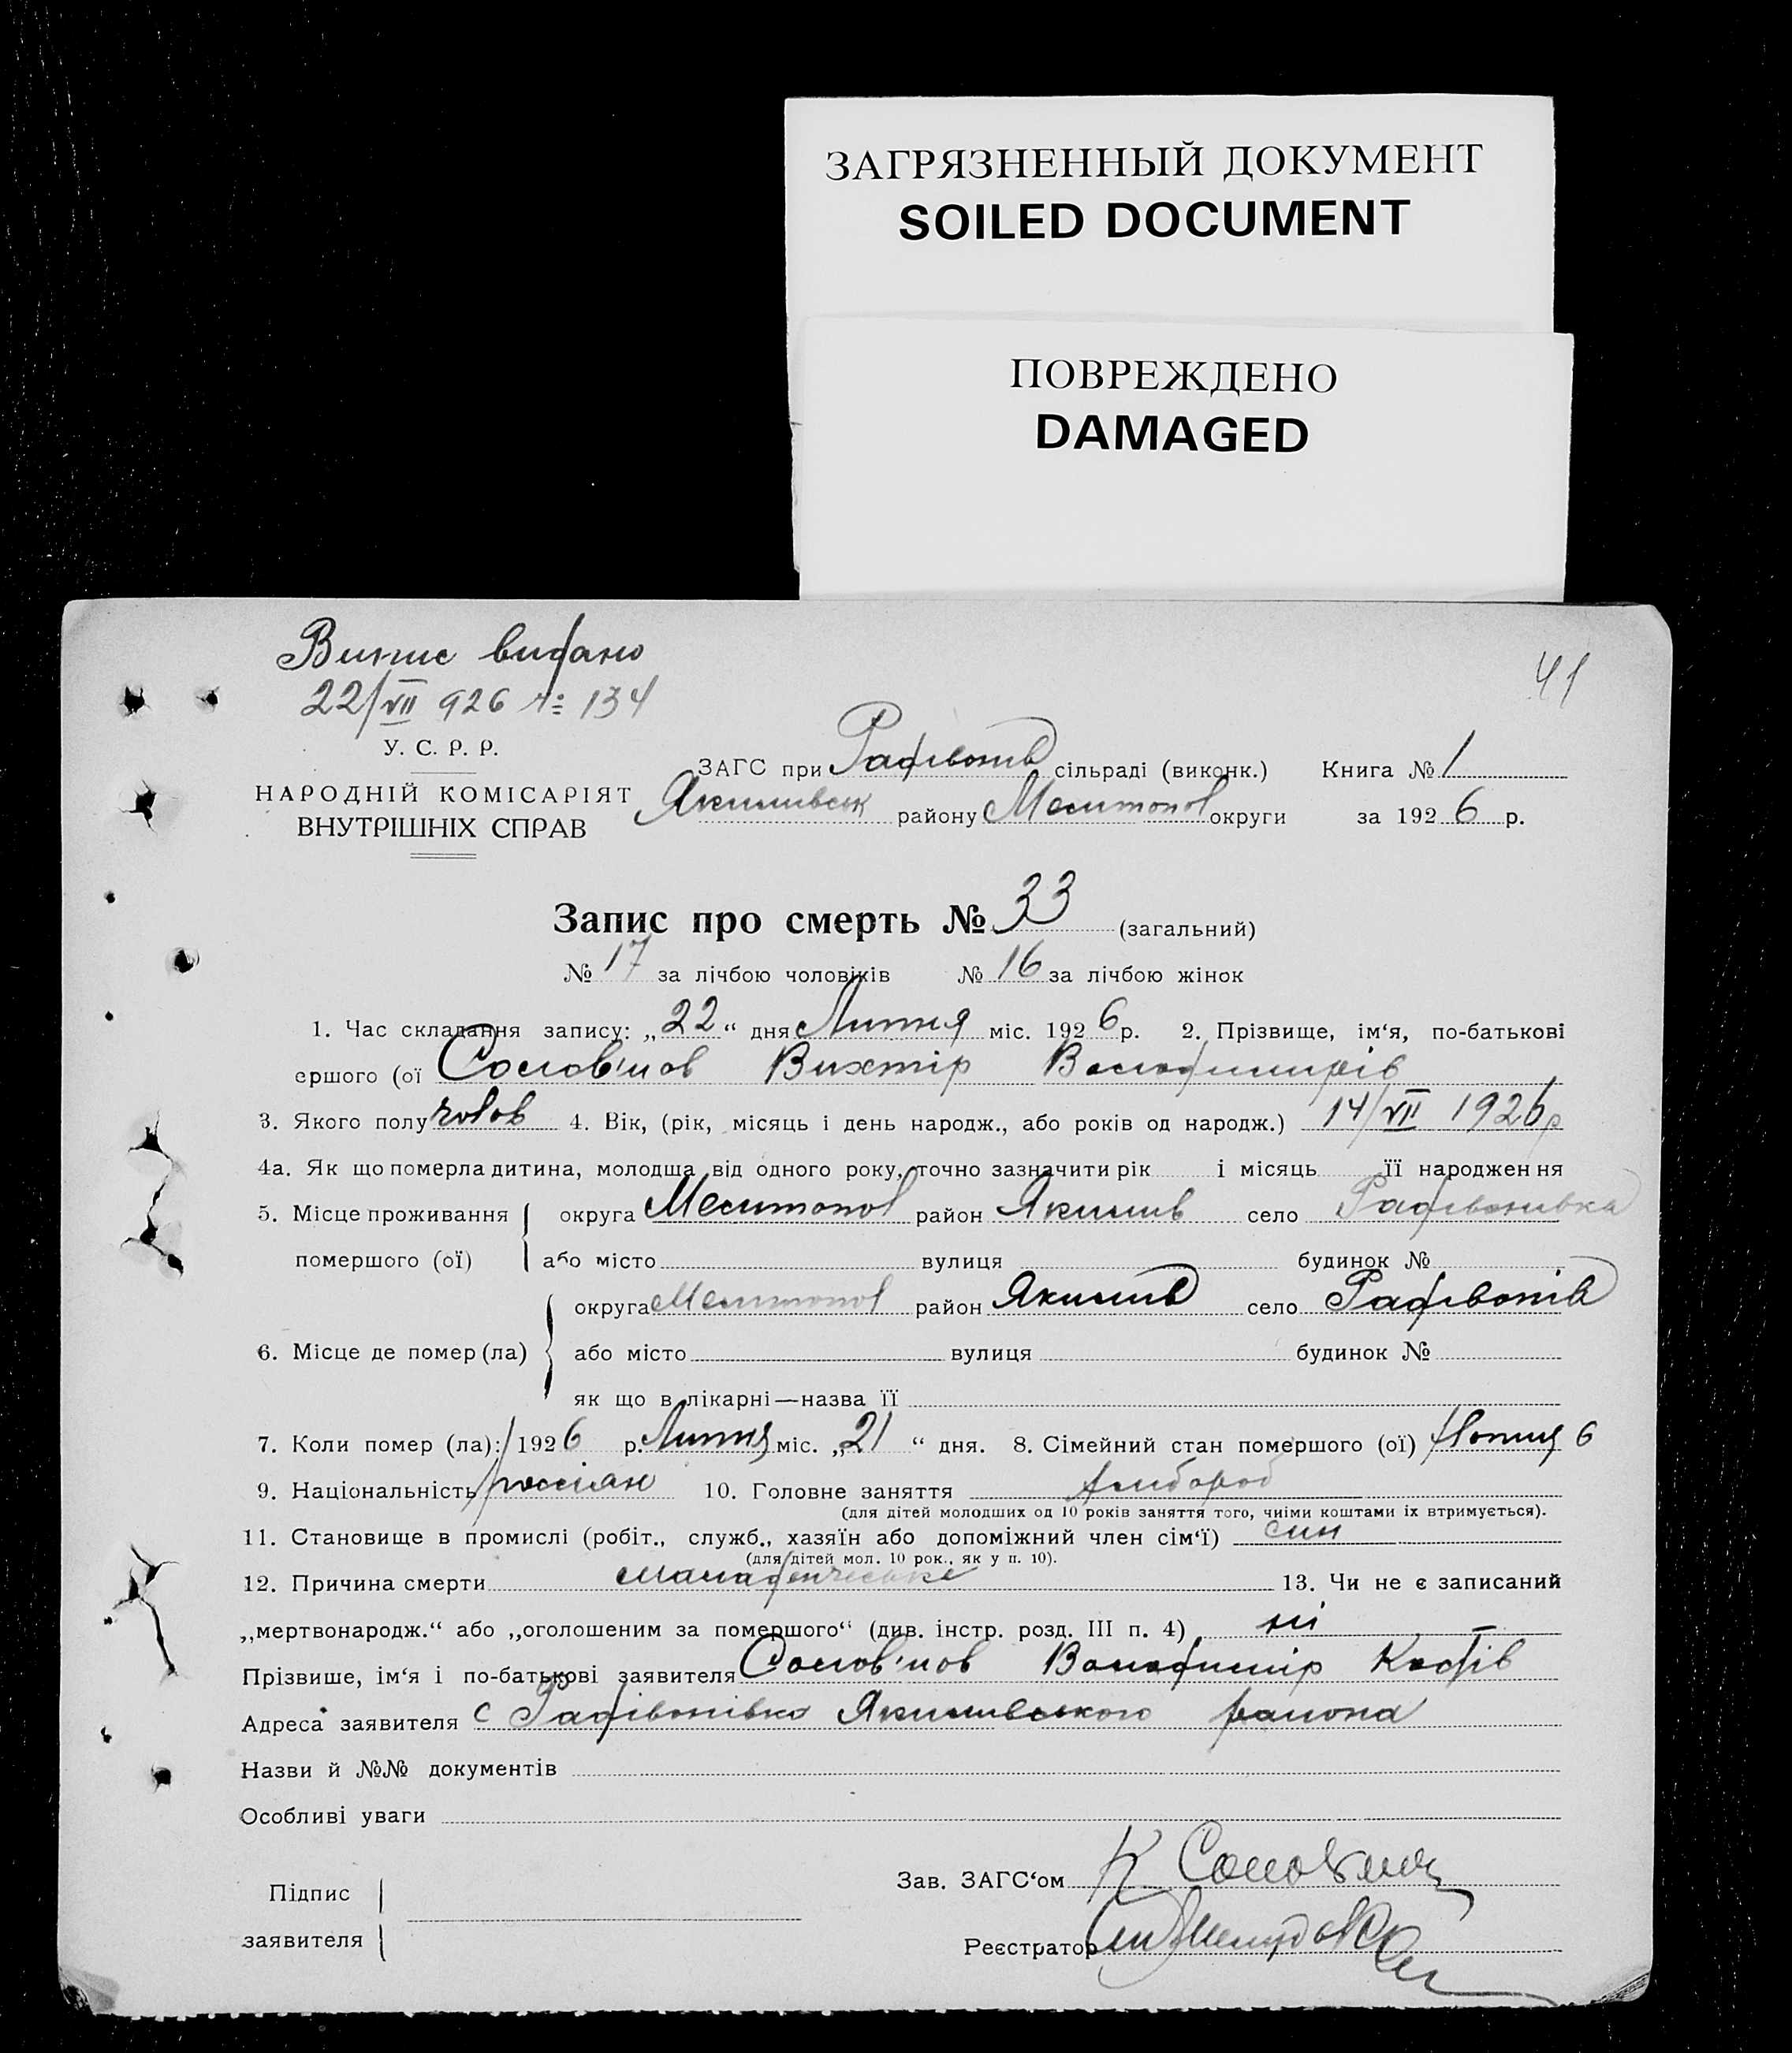 ЗАГРЯЗНЕННЫЙ ДОКУМЕНТ
SOILED DOCUMENT
ПОВРЕЖДЕНО
DAMAGED
Випис видано
22/VII 926 №: 134
41
У. С. Р. Р.
НАРОДНІЙ КОМІСАРІЯТ
ВНУТРІШНІХ СПРАВ
ЗАГС при Радівонів сільраді (виконк.) Книга № 1
Якимивськ району Мелитопол округи за 1926 р.
Запис про смерть № 33 (загальний)
№ 17 за лічбою чоловіків № 16 за лічбою жінок
1. Час складання запису: „22“ дня Липня міс. 1926 р. 2. Прізвище, ім‘я, по-батькові
ершого (ої Солов'йов Вихтір Володимирів
3. Якого полу чолов 4. Вік, (рік, місяць і день народж., або років од народж.) 14/VII 1926 р
4а. Як що померла дитина, молодша від одного року, точно зазначити рік і місяць її народження
5. Місце проживання округа Мелитопол район Якимив село Радівонивка
помершого (ої) або місто вулиця будинок №
округа Мелитопол район Якимив село Радивонів
6. Місце де помер (ла) або місто вулиця будинок №
як що в лікарні—назва її
7. Коли помер (ла): 1926 р. Липня міс. „21“ дня. 8. Сімейний стан помершого (ої)
9. Національність россіян 10. Головне заняття хлібороб
(для дітей молодших од 10 років заняття того, чиїми коштами їх втримується).
11. Становище в промислі (робіт., служб., хазяїн або допоміжний член сім‘ї) син
(для дітей мол. 10 рок., як у п. 10).
12. Причина смерти 13. Чи не є записаний
„мертвонародж.“ або „оголошеним за помершого“ (див. інстр. розд. III п. 4) ні
Прізвище, ім‘я і по-батькові заявителя Солов'йов Володимир
Адреса заявителя с Радівонівка Якимивського района
Назви й №№ документів
Особливі уваги
Підпис
заявителя
Зав. ЗАГС‘ом К
Реєстратор